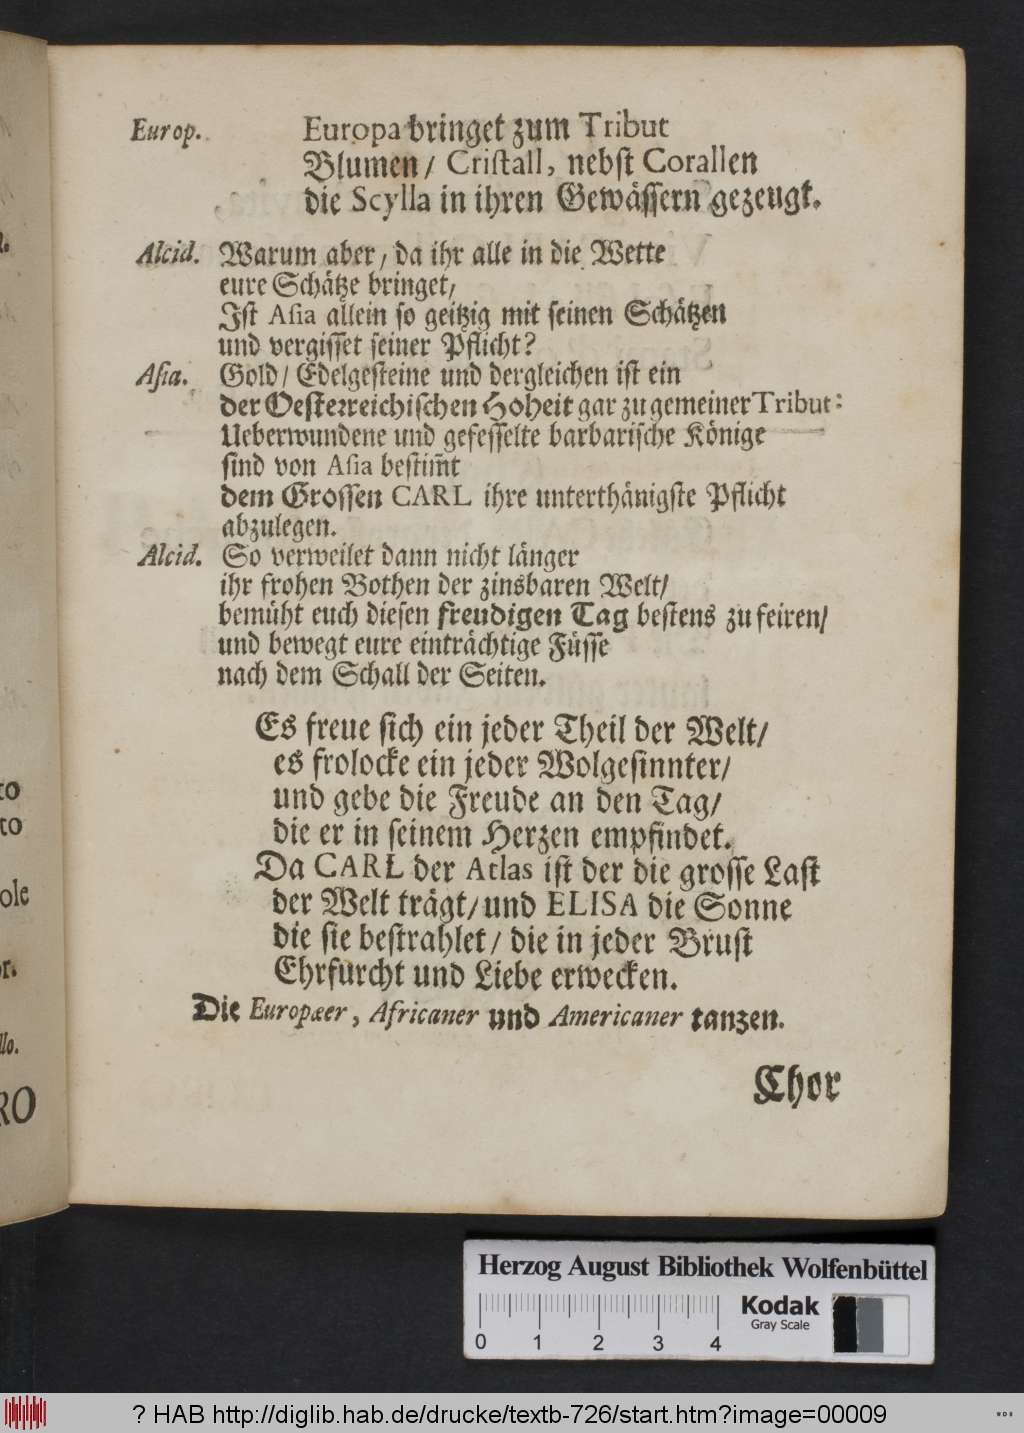 Europ. Europa bringet zum Tribut
Blumen/ Cristall, nebst Corallen
die Scylla in ihren Gewässern gezeugt.
Alcid. Warum aber/ da ihr alle in die Wette
eure Schätze bringet/
Ist Asia allein so geitzig mit seinen Schätzen
und vergisset seiner Pflicht?
Asia. Gold/ Edelgesteine und dergleichen ist ein
der Oesterreichischen Hoheit gar zu gemeiner Tribut:
Ueberwundene und gefesselte barbarische Könige
sind von Asia bestim̃t
dem Grossen CARL ihre unterthänigste Pflicht
abzulegen.
Alcid. So verweilet dann nicht länger
ihr frohen Bothen der zinsbaren Welt/
bemüht euch diesen freudigen Tag bestens zu feiren/
und bewegt eure einträchtige Füsse
nach dem Schall der Seiten.
Es freue sich ein jeder Theil der Welt/
es frolocke ein jeder Wolgesinnter/
und gebe die Freude an den Tag/
die er in seinem Herzen empfindet.
Da CARL der Atlas ist der die grosse Last
der Welt trägt/ und ELISA die Sonne
die sie bestrahlet/ die in jeder Brust
Ehrfurcht und Liebe erwecken.
Die Europæer, Africaner und Americaner tanzen.
Chor
to
to
ole
or.
llo.
RO
Herzog August Bibliothek Wolfenbüttel
0 1 2 3 4
Kodak
Gray Scale
? HAB http://diglib.hab.de/drucke/textb-726/start.htm?image=00009